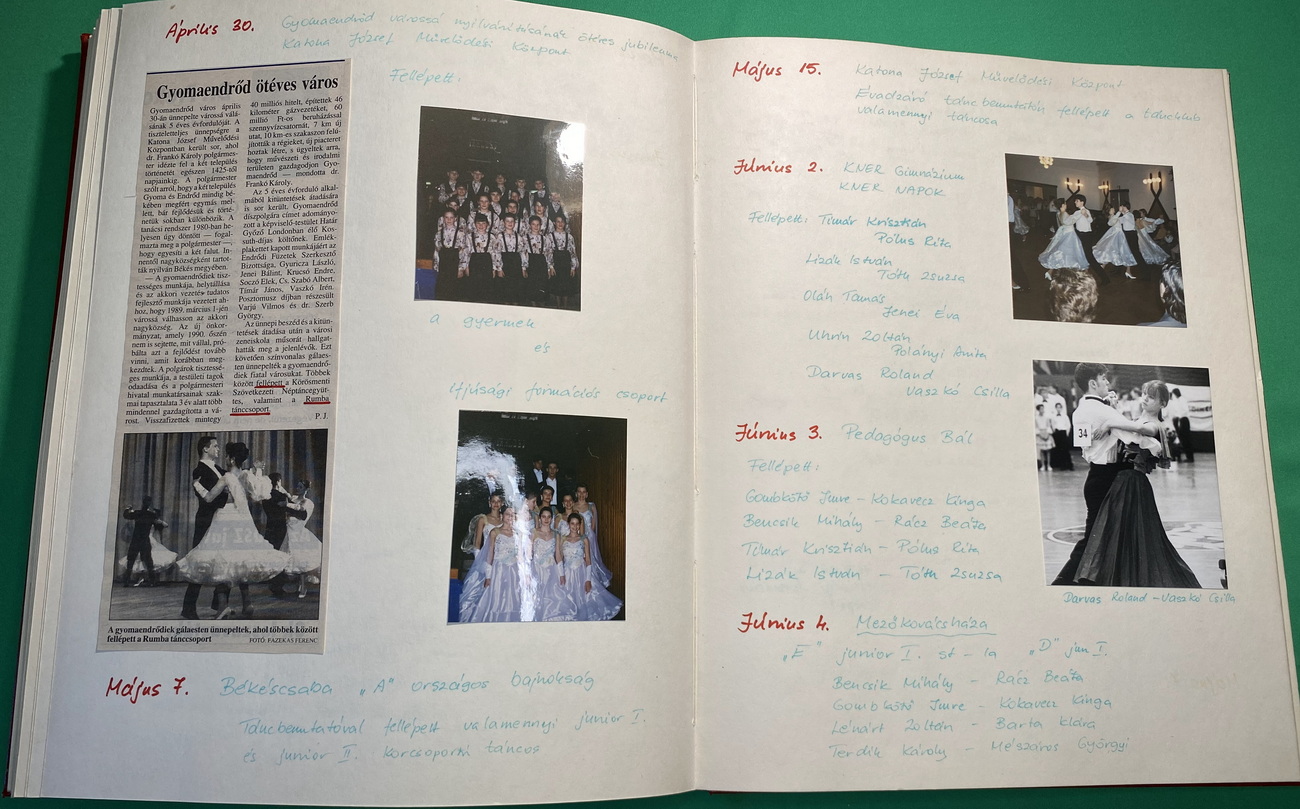 Április 30. Gyomaendrőd várossá nyilvánításának ötéves jubileuma
Katona József Művelődési Központ
Gyomaendrőd ötéves város
Gyomaendrőd város április
30-án ünnepelte várossá válá-
sának 5 éves évfordulóját. A
tiszteletteljes ünnepségre a
Katona József Művelődési
Központban került sor, ahol
dr. Frankó Károly polgármes-
ter idézte fel a két település
történetét egészen 1425-től
napjainkig. A polgármester
szólt arról, hogy a két település
Gyoma és Endrőd mindig bé-
kében megfért egymás mel-
lett, bár fejlődésük és törté-
netük sokban különbözik. A
tanácsi rendszer 1980-ban he-
lyesen úgy döntött — fogal-
mazta meg a polgármester —,
hogy egyesíti a két falut. In-
nentől nagyközségként tartot-
ták nyilván Békés megyében.
— A gyomaendrődiek tisz-
tességes munkája, helytállása
és az akkori vezetés tudatos
fejlesztő munkája vezetett ah-
hoz, hogy 1989. március 1-jén
várossá válhasson az akkori
nagyközség. Az új önkor-
mányzat, amely 1990. őszén
nem is sejtette, mit vállal, pró-
bálta azt a fejlődést tovább
vinni, amit korábban meg-
kezdtek. A polgárok tisztessé-
ges munkája, a testületi tagok
odaadása és a polgármesteri
hivatal munkatársainak szak-
mai tapasztalata 3 év alatt több
mindennel gazdagította a vá-
rost. Visszafizettek mintegy
40 milliós hitelt, építettek 46
kilométer gázvezetéket, 60
millió Ft-os beruházással
szennyvízcsatornát, 7 km új
utat, 10 km-es szakaszon felú-
jították a régieket, új piacteret
hoztak létre, s ügyeltek arra,
hogy művészeti és irodalmi
területen gazdagodjon Gyo-
maendrőd — mondotta dr.
Frankó Károly.
Az 5 éves évforduló alkal-
mából kitüntetések átadására
is sor került. Gyomaendrőd
díszpolgára címet adományo-
zott a képviselő-testület Határ
Győző Londonban élő Kos-
suth-díjas költőnek. Emlék-
plakettet kapott munkájáért az
Endrődi Füzetek Szerkesztő
Bizottsága, Gyuricza László,
Jenei Bálint, Krucsó Endre,
Soczó Elek, Cs. Szabó Albert,
Tímár János, Vaszkó Irén.
Posztomusz díjban részesült
Varjú Vilmos és dr. Szerb
György.
Az ünnepi beszéd és a kitün-
tetések átadása után a városi
zeneiskola műsorát hallgat-
hatták meg a jelenlévők. Ezt
követően színvonalas gálaes-
ten ünnepelték a gyomaendrő-
diek fiatal városukat. Többek
között fellépett a Körösmenti
Szövetkezeti Néptáncegyüt-
tes, valamint a Rumba
tánccsoport.
P. J.
A gyomaendrődiek gálaesten ünnepeltek, ahol többek között
fellépett a Rumba tánccsoport
FOTÓ: FAZEKAS FERENC
Fellépett:
a gyermek
és
Ifjúsági formációs csoport
Május 7. Békéscsaba „A" országos bajnokság
Táncbemutatóval fellépett valamennyi junior I.
és junior II. korcsoportú táncos
Május 15. Katona József Művelődési Központ
Évadzáró táncbemutatón fellépett a táncklub
valamennyi táncosa
Június 2. KNER Gimnázium
KNER NAPOK
Fellépett: Tímár Krisztián
Pólus Rita
Lizák István
Tóth Zsuzsa
Oláh Tamás
Jenei Éva
Uhrin Zoltán
Polányi Anita
Darvas Roland
Vaszkó Csilla
Június 3. Pedagógus Bál
Fellépett:
Gombkötő Imre – Kokavecz Kinga
Bencsik Mihály – Rácz Beáta
Tímár Krisztián – Pólus Rita
Lizák István – Tóth Zsuzsa
34
Darvas Roland – Vaszkó Csilla
Június 4. Mezőkovácsháza
„E" junior I. st – la „D" jun I.
Bencsik Mihály – Rácz Beáta
Gombkötő Imre – Kokavecz Kinga
Lénárt Zoltán – Barta Klára
Terdik Károly – Mészáros Györgyi